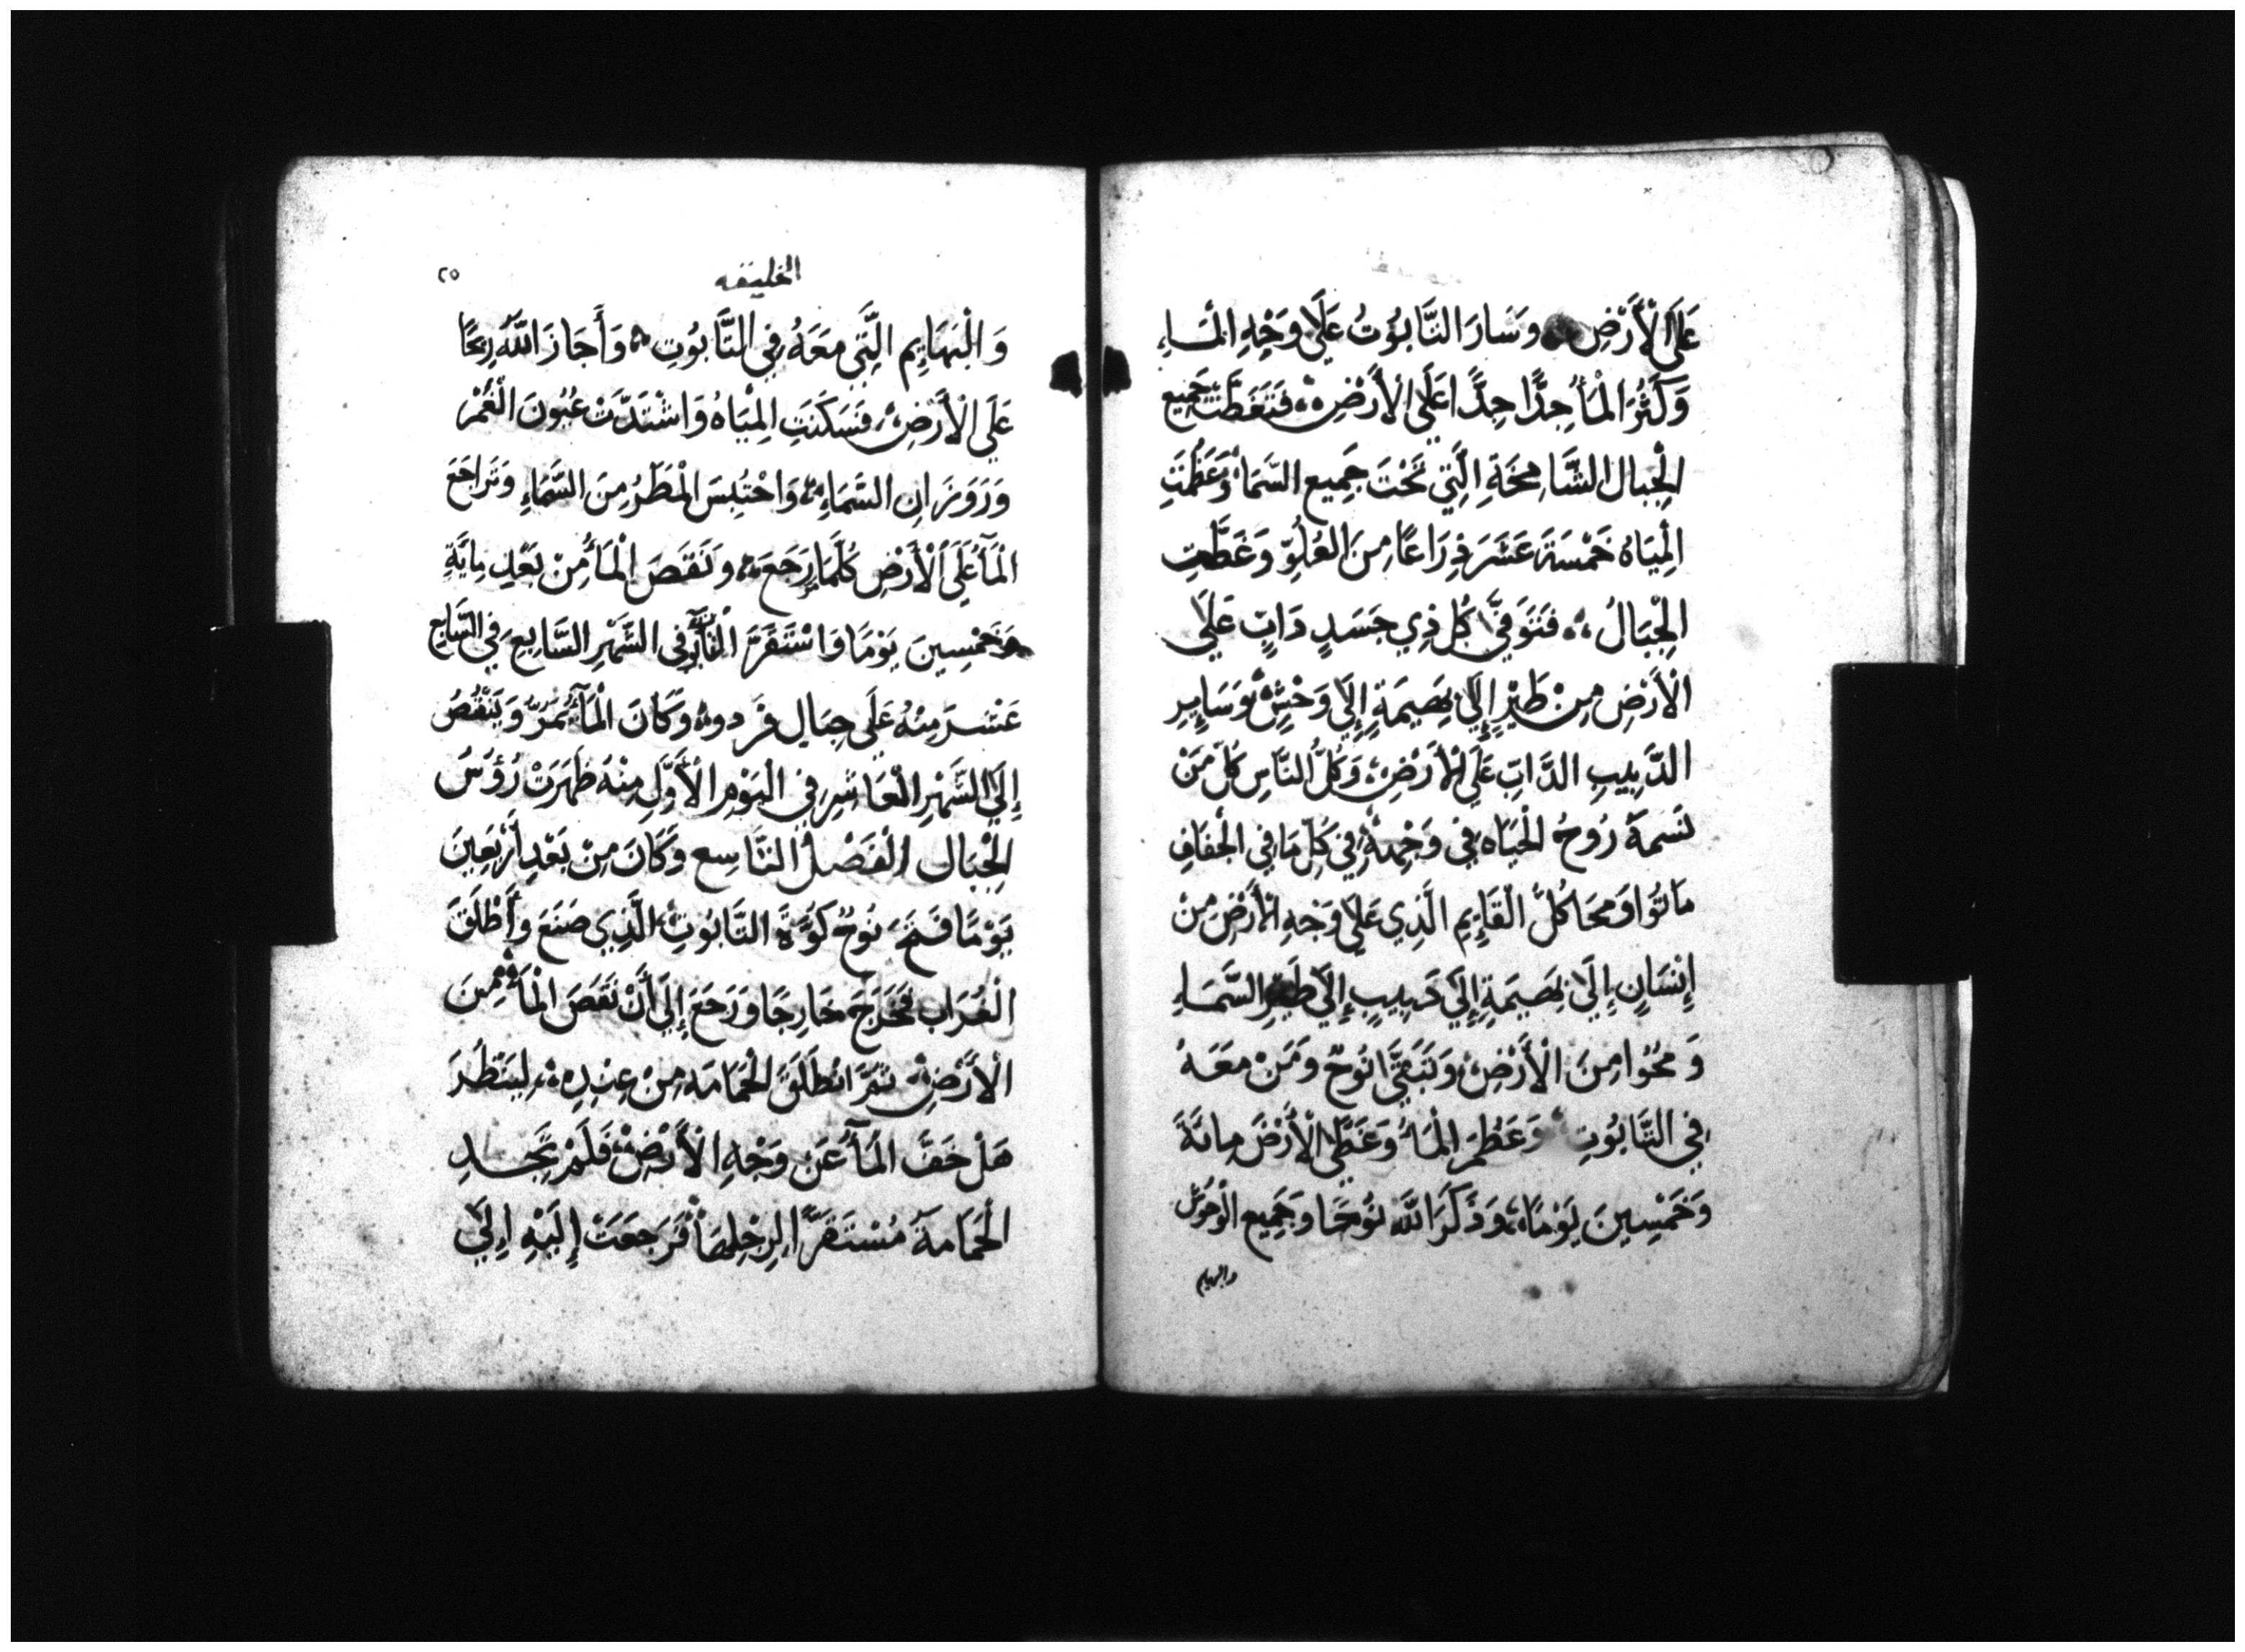 عَلَى الْأَرْضِ وَسَارَ التَّابُوُتُ عَلَي وَجْهِ الْمَاءِ
وَكَثُرَ الْمَأُ جِدًّا جِدًّا عَلَي الْأَرْضِ فَتَغَطَّتْ جَمِيع
الْجِبال الشَّامِخَةِ الَّتِي تَحْتَ جَمِيعِ السَّمَاء وَعَظُمَتِ
الْمِيَاهُ خَمْسَةَ عَشَرَ ذِرَاعًا مِنَ العُلُوِّ وَغَطَّتِ
الْجِبَالُ فَتَوَفَّي كُلّ ذِي جَسَدٍ دَابٍ عَلَي
الْأَرْضِ مِنْ طَيْرٍ إِلَي بَهِيمَةٍ إِلَي وَحْشٍ وَسَايِرِ
الدَّبِيبِ الدَّابِّ عَلَى الْأَرْضِ وَكُلُّ النَّاسِ كُلّ مَنْ
نَسَمَةَ رُوحُ الْحَيَاه فِي وَجْهِهِ فِي كُلّ مَا فِي الْجَفَافِ
مَاتُوا وَمَحَا كُلَّ الْقَايِمِ الَّذِي عَلَي وَجْهِ الْأَرْضِ مِنْ
إِنْسَانٍ إِلَي بَهِيمَةٍ إِلَي دَبِيبٍ إِلَي طَيْرِ السَّمَاءِ
وَمُحُوا مِنَ الْأَرْضِ وَتَبَقَّي نُوحٌ وَمَنْ مَعَهُ
فِي التَّابُوتِ وَعَظُمَ الْمَاءُ وَغَطَّي الْأَرْضَ مِايَةً
وَخَمْسِينَ يَوْمًا وَذَكَرَ اللَّهُ نُوحًا وَجَمِيع الْوُحُوش
والبهايم
الخليقه
٢٥
وَالْبَهَايِم الَّتِي مَعَهُ فِي التَّابُوتِ وَأَجَازَ اللَّهُ رِيحًا
عَلَى الْأَرْضِ فَسَكَنَتِ الْمِيَاهُ وَاشْتَدَّتْ عُيُونَ الْغَمْر
وَرَوَزَانِ السَّمَاءِ وَاحْتُبِسَ الْمَطَرُ مِنَ السَّمَاءِ وَتَرَاجَعَ
الْمَآءُ عَلَي الْأَرْضِ كُلَّمَا رَجَعَ وَنَقَصَ الْمَأُ مِنْ بَعْدِ مِايَةِ
وَخَمْسِينَ يَوْمًا وَاسْتَقَرَّ التَّابُوت فِي الشَّهْرِ السَّابِعِ فِي السَّابِع
عَشَرَ مِنْهُ عَلَى جِبَالِ قَرْدوه وَكَانَ الْمَآءُ يَمُرُّ وَيَنْقُصُ
إِلَى الشَّهْرِ الْعَاشِرِ فِي الْيَوْمِ الْأَوَّلِ مِنْهُ ظَهَرَتْ رُؤُوسُ
الْجِبَالِ الْفَصْلُ التَّاسِع وَكَانَ مِنْ بَعْدِ أَرْبَعِينَ
يَوْمًا فَتَحَ نُوحٌ كُوَّةَ التَّابُوتِ الَّذِي صَنَعَ وَأَطْلَقَ
الْغُرَابَ فَخَرَجَ خَارِجًا وَرَجَعَ إِلَي أَنْ نَقَصَ الْمَاءُ مِنَ
الْأَرْضِ ثُمَّ اَطْلَقَ الْحَمَامَه مِنْ عِنْدِهِ لِيَنْظُرَ
هَلْ خَفَّ الْمَآءُ عَن وَجْهِ الْأَرْضِ فَلَمْ تَجِدِ
الْحَمَامَةَ مُسْتَقَرًّا لِرِجْلِهَا فَرَجَعَتْ إِلَيْهِ اِلَي